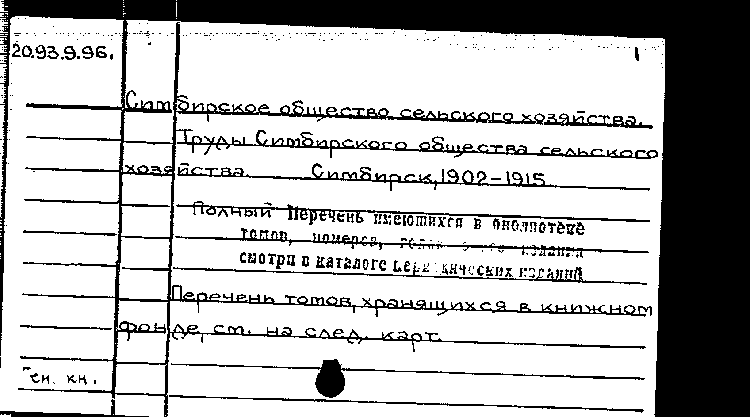 20.93.9.96.
1
Симбирское общество сельского хозяйства.
Труды Симбирского общества сельского
хозяйства. Симбирск, 1902-1915
Полный Перечень имеющихся в библиотеке
томов, номеров, издания
смотри в каталоге изданий
Перечень томов, хранящихся в книжном
фонде, см. на след. карт.
кн.